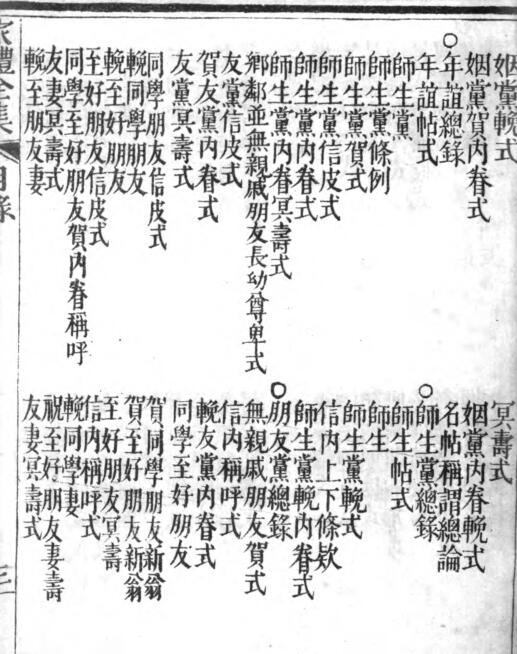 姻黨輓式
冥壽式
姻黨賀內眷式
姻黨內眷輓式
○年誼總錄
名帖稱謂總論
年誼帖式
○師生黨總錄
師生黨
師生帖式
師生黨條例
師生
師生黨賀式
師生黨輓式
師生黨信皮式
信內上下條欵
師生黨內眷式
師生黨輓內眷式
師生黨內眷冥壽式
○朋友黨總錄
鄉鄰並無親戚朋友長幼尊卑式
無親戚朋友賀式
友黨信皮式
信內稱呼式
賀友黨內眷式
輓友黨內眷式
友黨冥壽式
同學至好朋友
同學朋友信皮式
賀同學朋友新翁
輓同學朋友
賀至好朋友新翁
輓至好朋友
至好朋友冥壽
至好朋友信皮式
信內稱呼式
同學至好朋友賀內眷稱呼
輓同學妻
友妻冥壽式
祝至好朋友妻壽
輓至朋友妻
友妻冥壽式
家禮全集 目錄 三